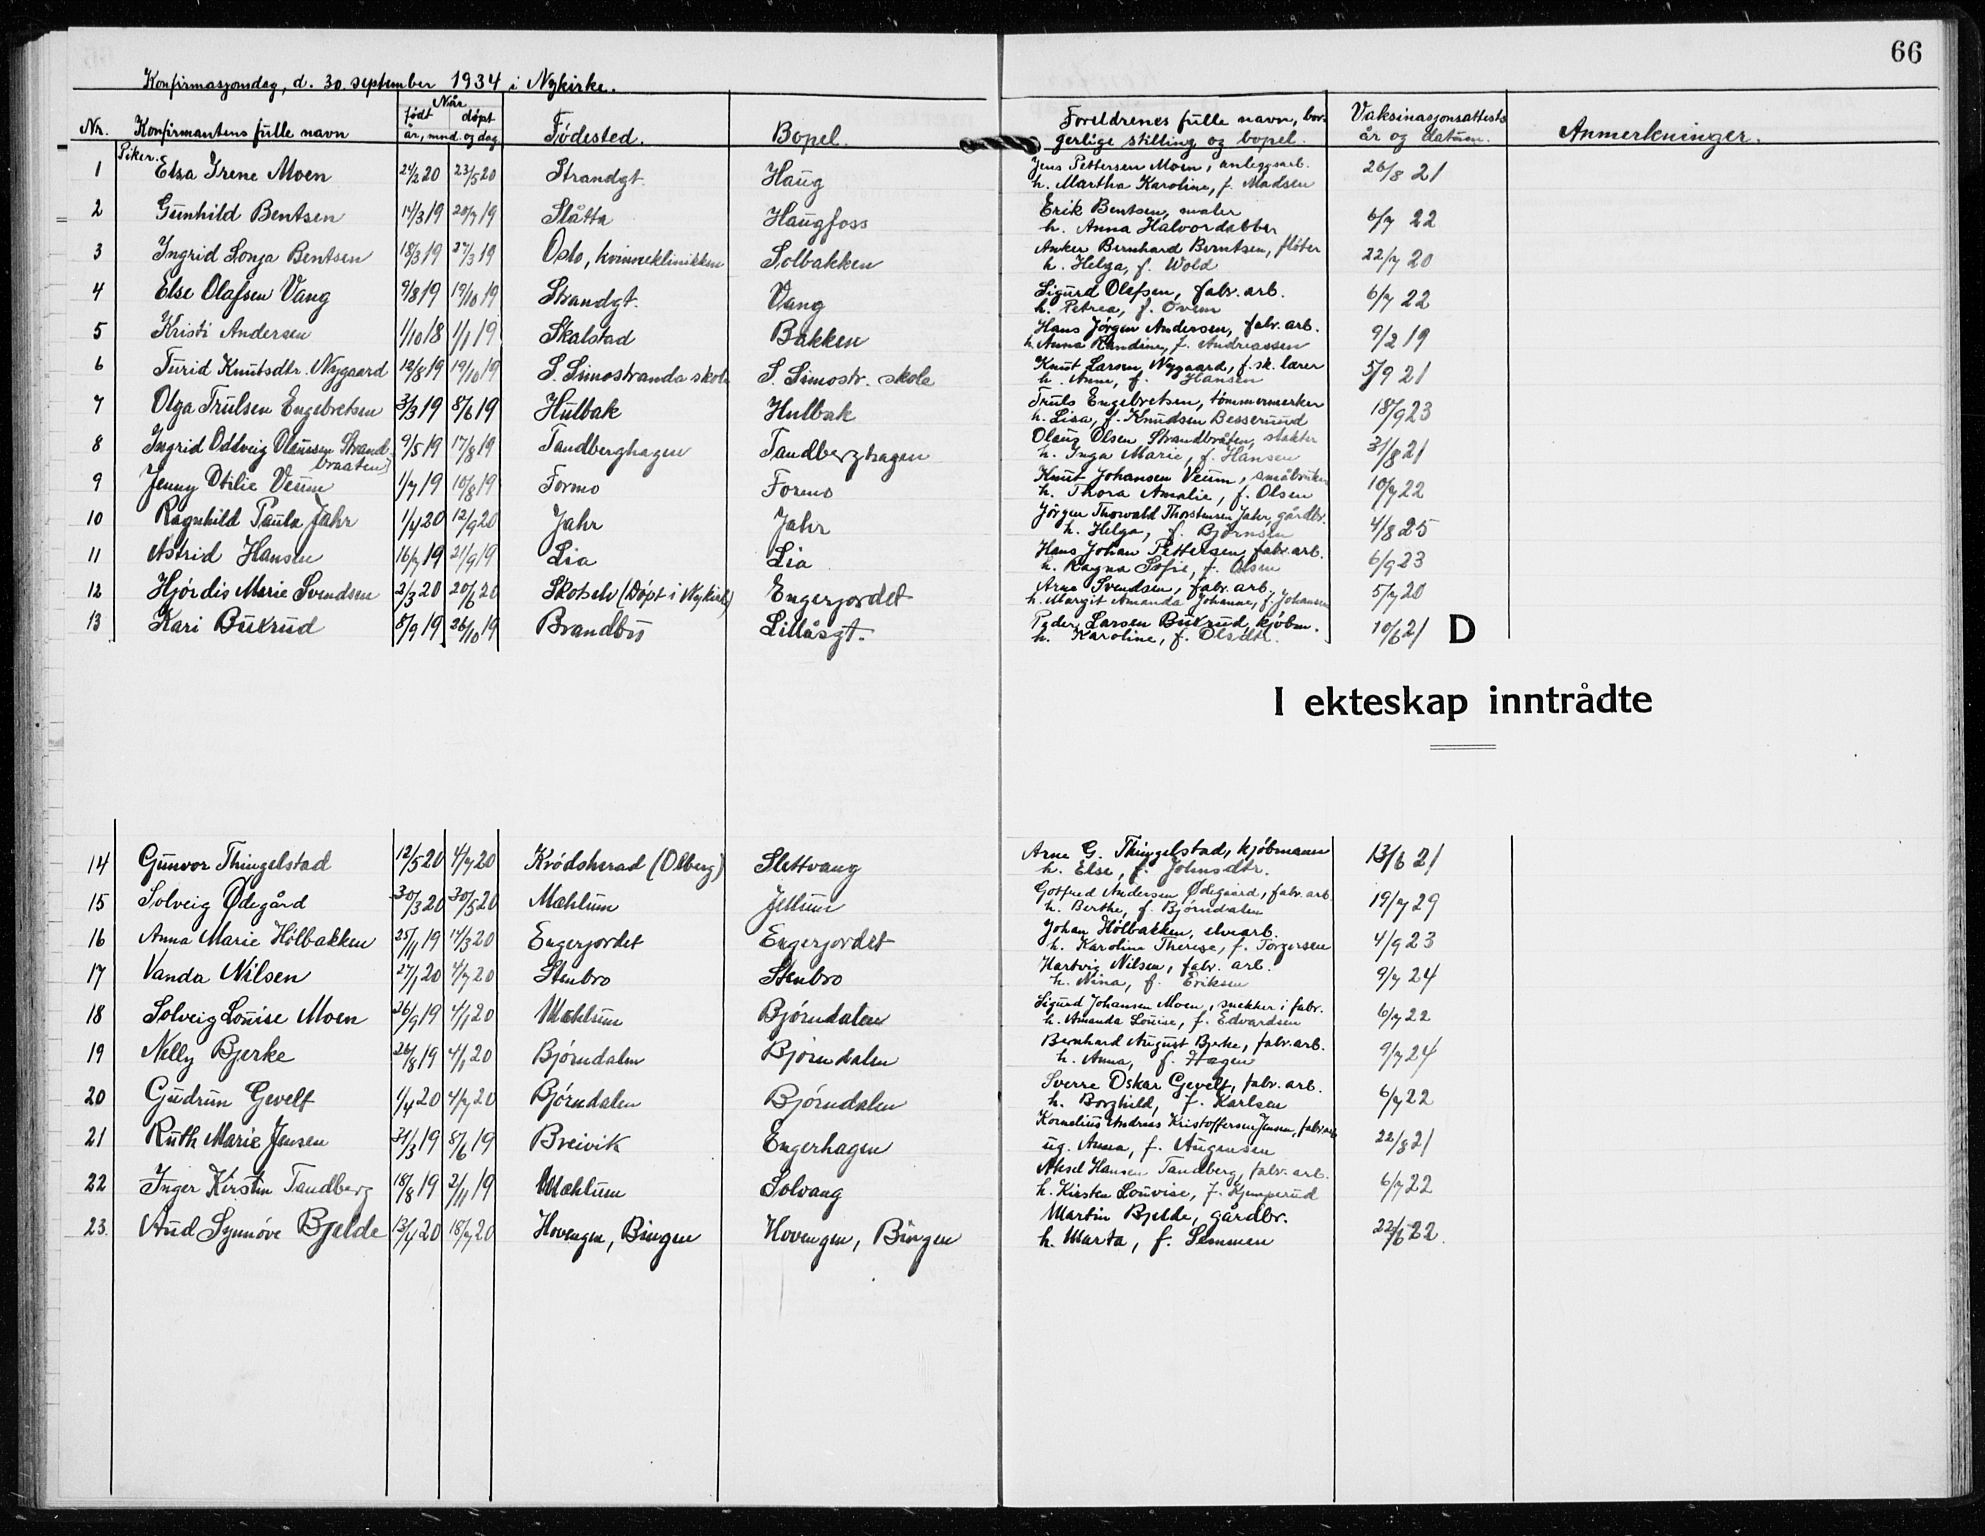 66
Konfirmasjonsdag, d. 30. september 1934 i Nykirke.
Nr. Konfirmantens fulle navn Når født døpt år, mnd. og dag Fødested. Bopel. Foreldrenes fulle navn, bor- Vaksinasjonsattests Anmerkninger.
gerlige stilling og bopel. år og datum.
Piker.
1 Elsa Irene Moen 24/2 20 23/5 20 Strandgt. Haug Jens Pettersen Moen, anleggsarb. 26/8 21
h. Martha Karoline, f. Madsen
2 Gunhild Bentsen 14/3 19 20/7 19 Slåtta Haugfoss Erik Bentsen, maler 6/7 22
h. Anna Halvordabber
3 Ingrid Sonja Bentsen 18/3 19 27/3 19 Oslo, kvinneklinikken Solbakken Anker Bernhard Berntsen, fløter 22/7 20
h. Helga, f. Wold
4 Else Olafsen Vang 9/8 19 19/10 19 Strandgt. Vang Sigurd Olafsen, fabr. arb. 6/7 22
h. Petrea, f. Ovem
5 Kristi Andersen 1/10 18 1/1 19 Skalstad Bakken Hans Jørgen Andersen, fabr. arb. 9/2 19
h. Anna Randine, f. Andreassen
6 Turid Knutsdtr. Nygaard 12/8 19 19/10 19 S. Simostranda skole S. Simostr. skole Knut Larsen Nygaard, f. sk. lærer 5/9 21
h. Anne, f. Hansen
7 Olga Trulsen Engebretsen 3/3 19 8/6 19 Hulbak Hulbak Truls Engebretsen, tømmermerker 18/9 23
h. Lisa, f. Knudsen Besserud
8 Ingrid Oddveig Olaussen Strand- 9/5 19 17/8 19 Tandberghagen Tandberghagen Olaus Olsen Strandbråten, slakter 31/8 21
braaten h. Inga Marie, f. Hansen
9 Jenny Otilie Veum 1/7 19 10/8 19 Formo Formo Knut Johansen Veum, småbruker 10/7 22
h. Thora Amalie, f. Olsen
10 Ragnhild Paula Jahr 1/4 20 12/9 20 Jahr Jahr Jørgen Thorvald Thorstensen Jahr, gårdbr. 4/8 25
h. Helga, f. Bjørnsen
11 Astrid Hansen 16/7 19 21/9 19 Lia Lia Hans Johan Pettersen, fabr. arb. 6/9 23
h. Ragna Sofie, f. Olsen
12 Hjørdis Marie Svendsen 2/3 20 20/6 20 Skotselv (Døpt i Nykirke) Engerjordet Arne Svendsen, fabr. arb. 5/7 20
h. Margit Amanda Johanne, f. Johansen
13 Kari Buxrud 8/9 19 26/10 19 Brandbu Lillåsgt. Peder Larsen Buxrud, kjøbm. 10/6 21
h. Karoline, f. Olsdtr.
D
I ekteskap inntrådte
14 Gunvor Thingelstad 12/5 20 4/7 20 Krødsherad (Olberg) Slettvang Arne G. Thingelstad, kjøbmann 13/6 21
h. Else, f. Johnsdtr.
15 Solveig Ødegård 30/3 20 30/5 20 Mæhlum Jellum Gotfred Andersen Ødegaard, fabr. arb. 19/7 29
h. Berthe, f. Bjørndalen
16 Anna Marie Hølbakken 25/11 19 14/3 20 Engerjordet Engerjordet Johan Hølbakken, elvearb. 4/9 23
h. Karoline Therese, f. Torgersen
17 Vanda Nilsen 27/1 20 4/7 20 Stenbro Stenbro Hartvig Nilsen, fabr. arb. 9/7 24
h. Nina, f. Eriksen
18 Solveig Louise Moen 26/9 19 4/1 20 Mæhlum Bjørndalen Sigurd Johansen Moen, snekker i fabr. 6/7 22
h. Amanda Louise, f. Edvardsen
19 Nelly Bjerke 26/8 19 4/1 20 Bjørndalen Bjørndalen Bernhard August Bjerke, fabr. arb. 9/7 24
h. Anna, f. Hagen
20 Gudrun Gevelt 1/4 20 4/7 20 Bjørndalen Bjørndalen Sverre Oskar Gevelt, fabr. arb. 6/7 22
h. Borghild, f. Karlsen
21 Ruth Marie Jensen 31/3 19 8/6 19 Breivik Engerhagen Kornelius Andreas Kristoffersen Jensen, fabr. arb. 22/8 21
ug. Anna, f. Augensen
22 Inger Kirstin Tandberg 18/8 19 2/11 19 Mæhlum Solvang Aksel Hansen Tandberg, fabr. arb. 6/7 22
h. Kirsten Louvise, f. Kjemperud
23 Aud Synnøve Bjelde 13/4 20 18/7 20 Hovengen, Bingen Hovengen, Bingen Martin Bjelde, gårdbr. 22/6 22.
h. Marta, f. Semmen